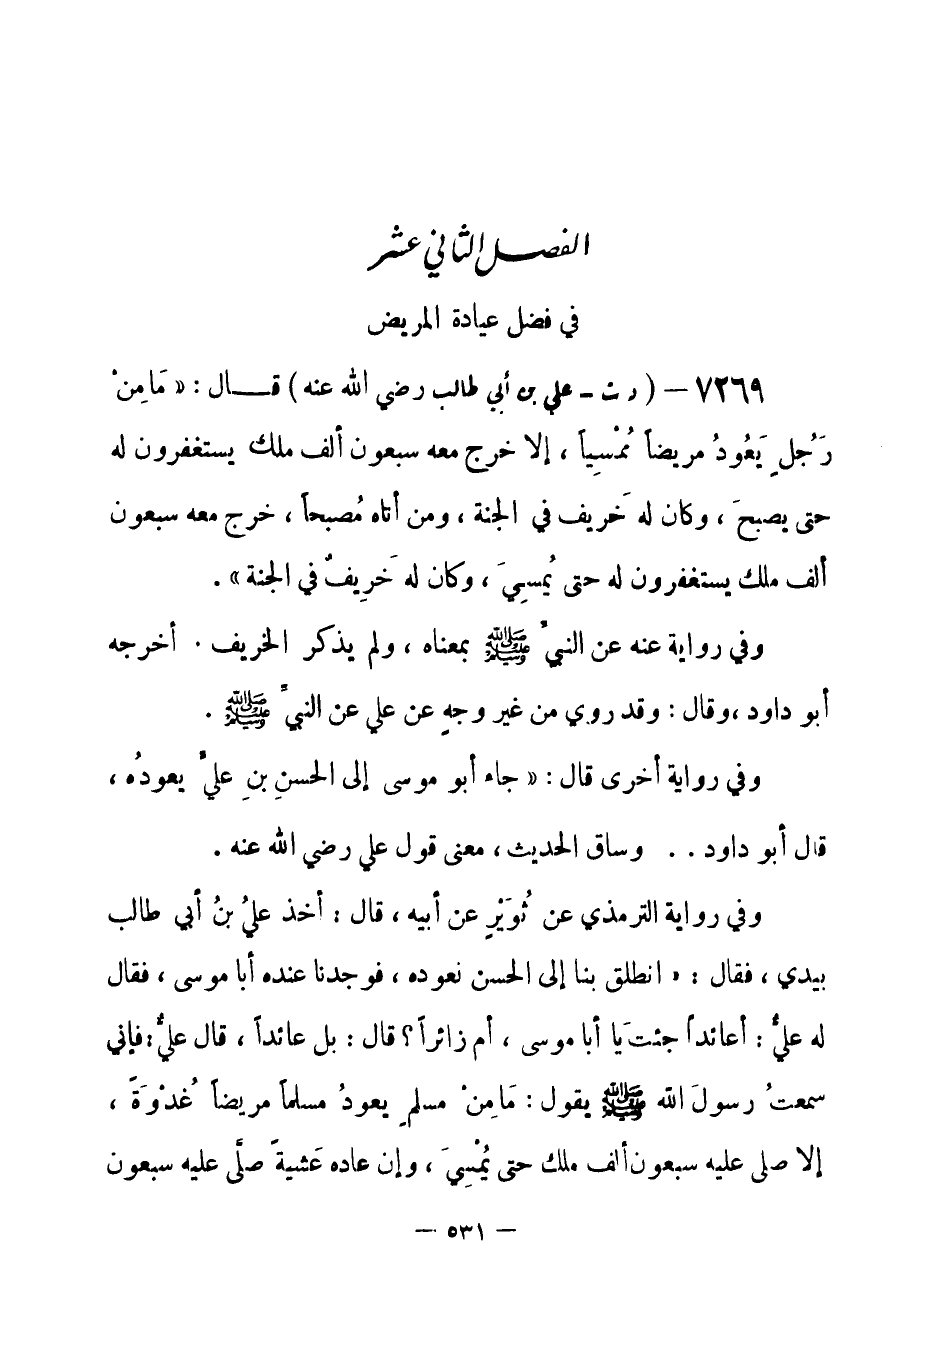 الفصل الثاني عشر
في فضل عيادة المريض
٧٢٦٩ – ( د ت – علي بن أبي طالب رضي الله عنه ) قال : « مَا مِنْ
رَجُلٍ يَعُودُ مريضاً مُمْسِياً ، إلا خرج معه سبعون ألف ملك يستغفرون له
حتى يصبحَ ، وكان له خَريف في الجنة ، ومن أتاه مُصبحاً ، خرج معه سبعون
ألف ملك يستغفرون له حتى يُمسِيَ ، وكان له خَرِيفٌ في الجنة » .
وفي رواية عنه عن النبيِّ ﷺ بمعناه ، ولم يذكر الخريف . أخرجه
أبو داود ، وقال : وقد روي من غير وجهٍ عن علي عن النبيِّ ﷺ .
وفي رواية أخرى قال : « جاء أبو موسى إلى الحسنِ بنِ عليٍّ يعودُه ،
قال أبو داود . . وساق الحديث ، معنى قول علي رضي الله عنه .
وفي رواية الترمذي عن ثُوَيْرٍ عن أبيه ، قال : أخذ عليُّ بنُ أبي طالب
بيدي ، فقال : « انطلق بنا إلى الحسن نعوده ، فوجدنا عنده أبا موسى ، فقال
له عليٌّ : أعائداً جئتَ يا أبا موسى ، أم زائراً ؟ قال : بل عائداً ، قال عليٌّ : فإني
سمعتُ رسولَ الله ﷺ يقول : مَا مِنْ مسلمٍ يعودُ مسلماً مريضاً غُدْوَةً ،
إلا صلى عليه سبعون ألف ملك حتى يُمْسِيَ ، وإن عاده عَشيةً صلَّى عليه سبعون
– ٥٣١ –